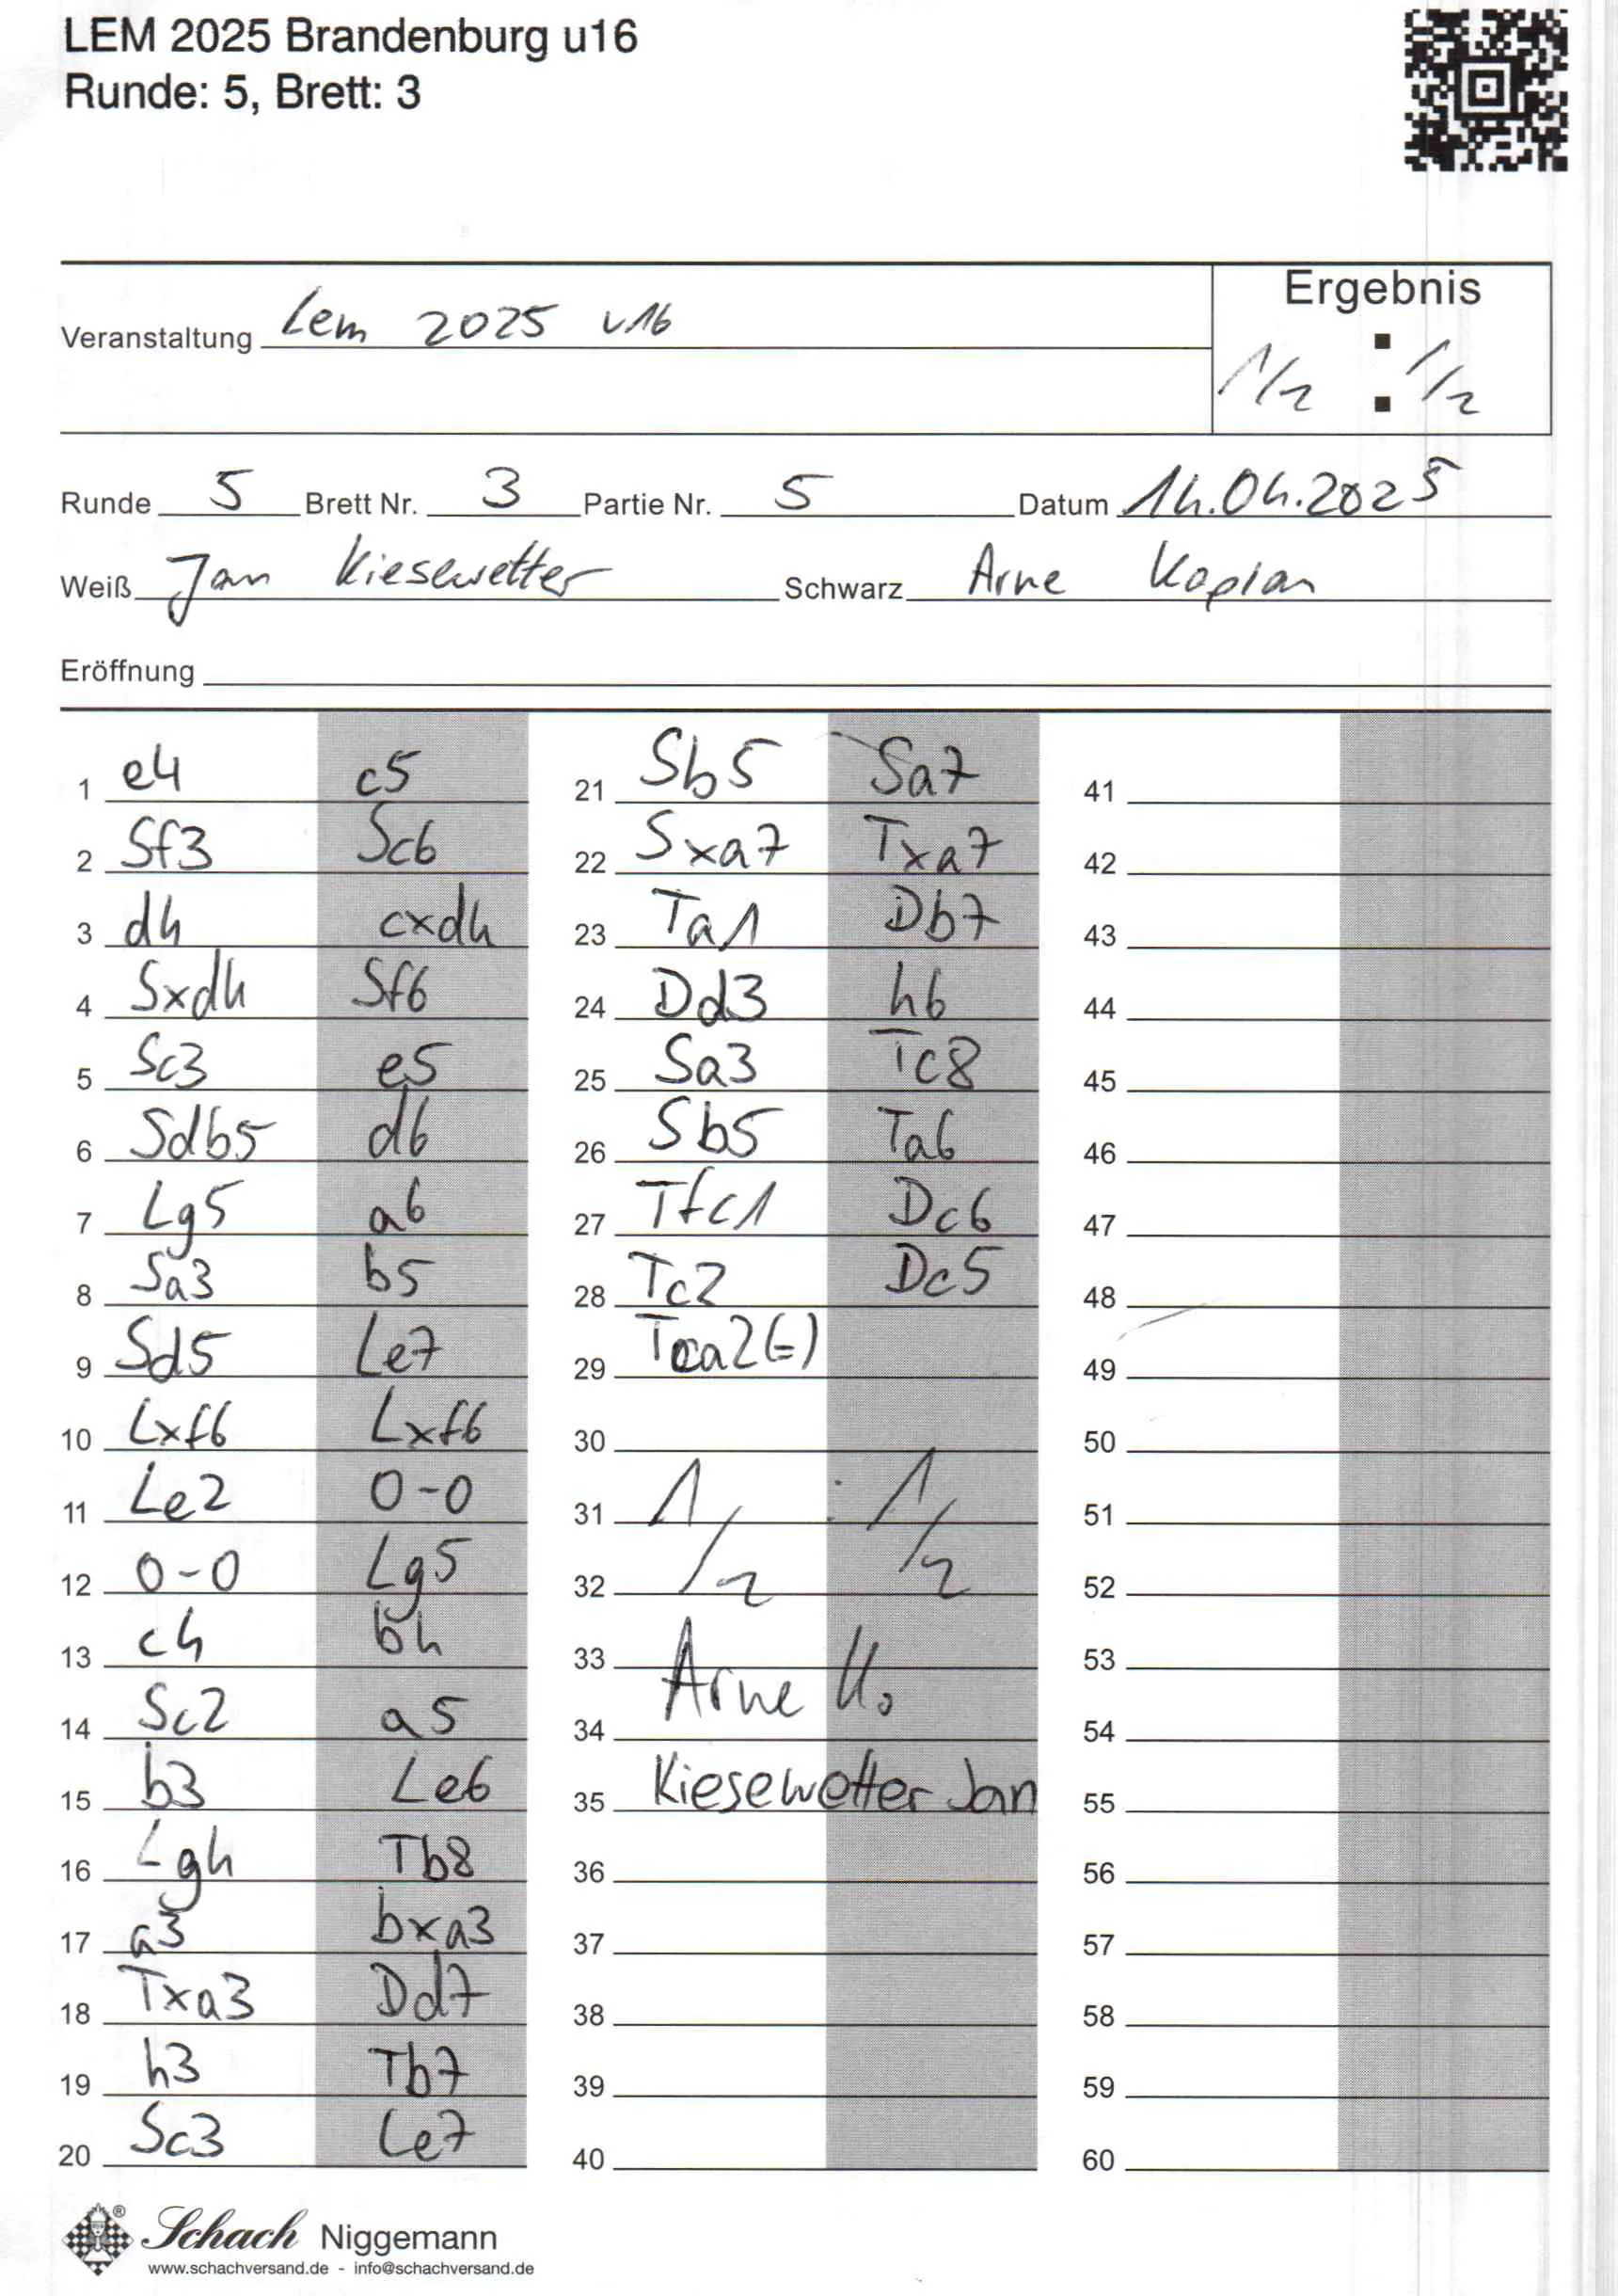 LEM 2025 Brandenburg u16
Runde: 5, Brett: 3
Ergebnis
Veranstaltung Lem 2025 u16
1/2 : 1/2
Runde 5 Brett Nr. 3 Partie Nr. 5 Datum 14.04.2025
Weiß Jan Kiesewetter Schwarz Arne Kaplan
Eröffnung
1 e4 c5
2 Sf3 Sc6
3 d4 cxd4
4 Sxd4 Sf6
5 Sc3 e5
6 Sdb5 d6
7 Lg5 a6
8 Sa3 b5
9 Sd5 Le7
10 Lxf6 Lxf6
11 Le2 0-0
12 0-0 Lg5
13 c4 b4
14 Sc2 a5
15 b3 Le6
16 Lg4 Tb8
17 a3 bxa3
18 Txa3 Dd7
19 h3 Tb7
20 Sc3 Le7
21 Sb5 Sa7
22 Sxa7 Txa7
23 Ta1 Db7
24 Dd3 h6
25 Sa3 Tc8
26 Sb5 Ta6
27 Tfc1 Dc6
28 Tc2 Dc5
29 Tca2(=)
30
31 1/2 : 1/2
32
33 Arne K.
34
35 Kiesewetter Jan
36
37
38
39
40
41
42
43
44
45
46
47
48
49
50
51
52
53
54
55
56
57
58
59
60
Schach Niggemann
www.schachversand.de - info@schachversand.de